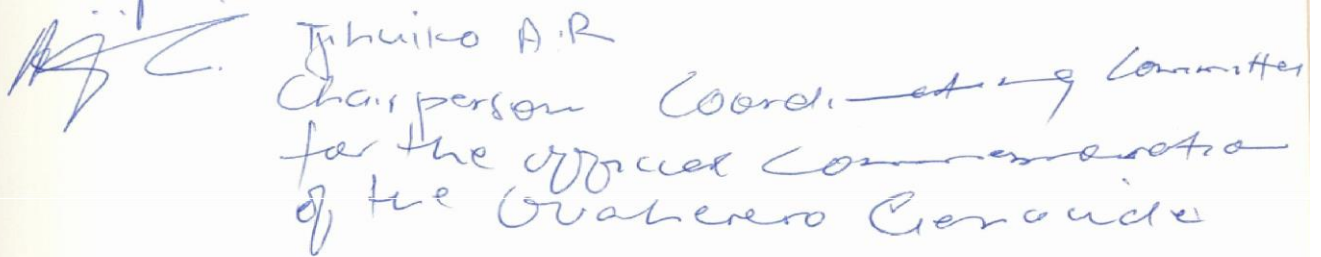 Tjihuiko A.R
Chairperson Coordinating Committee
for the official commemoration
of the Ovaherero Genocide